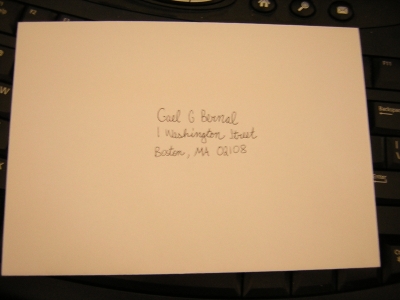 Gael G Bernal
1 Washington Street
Boston, MA 02108